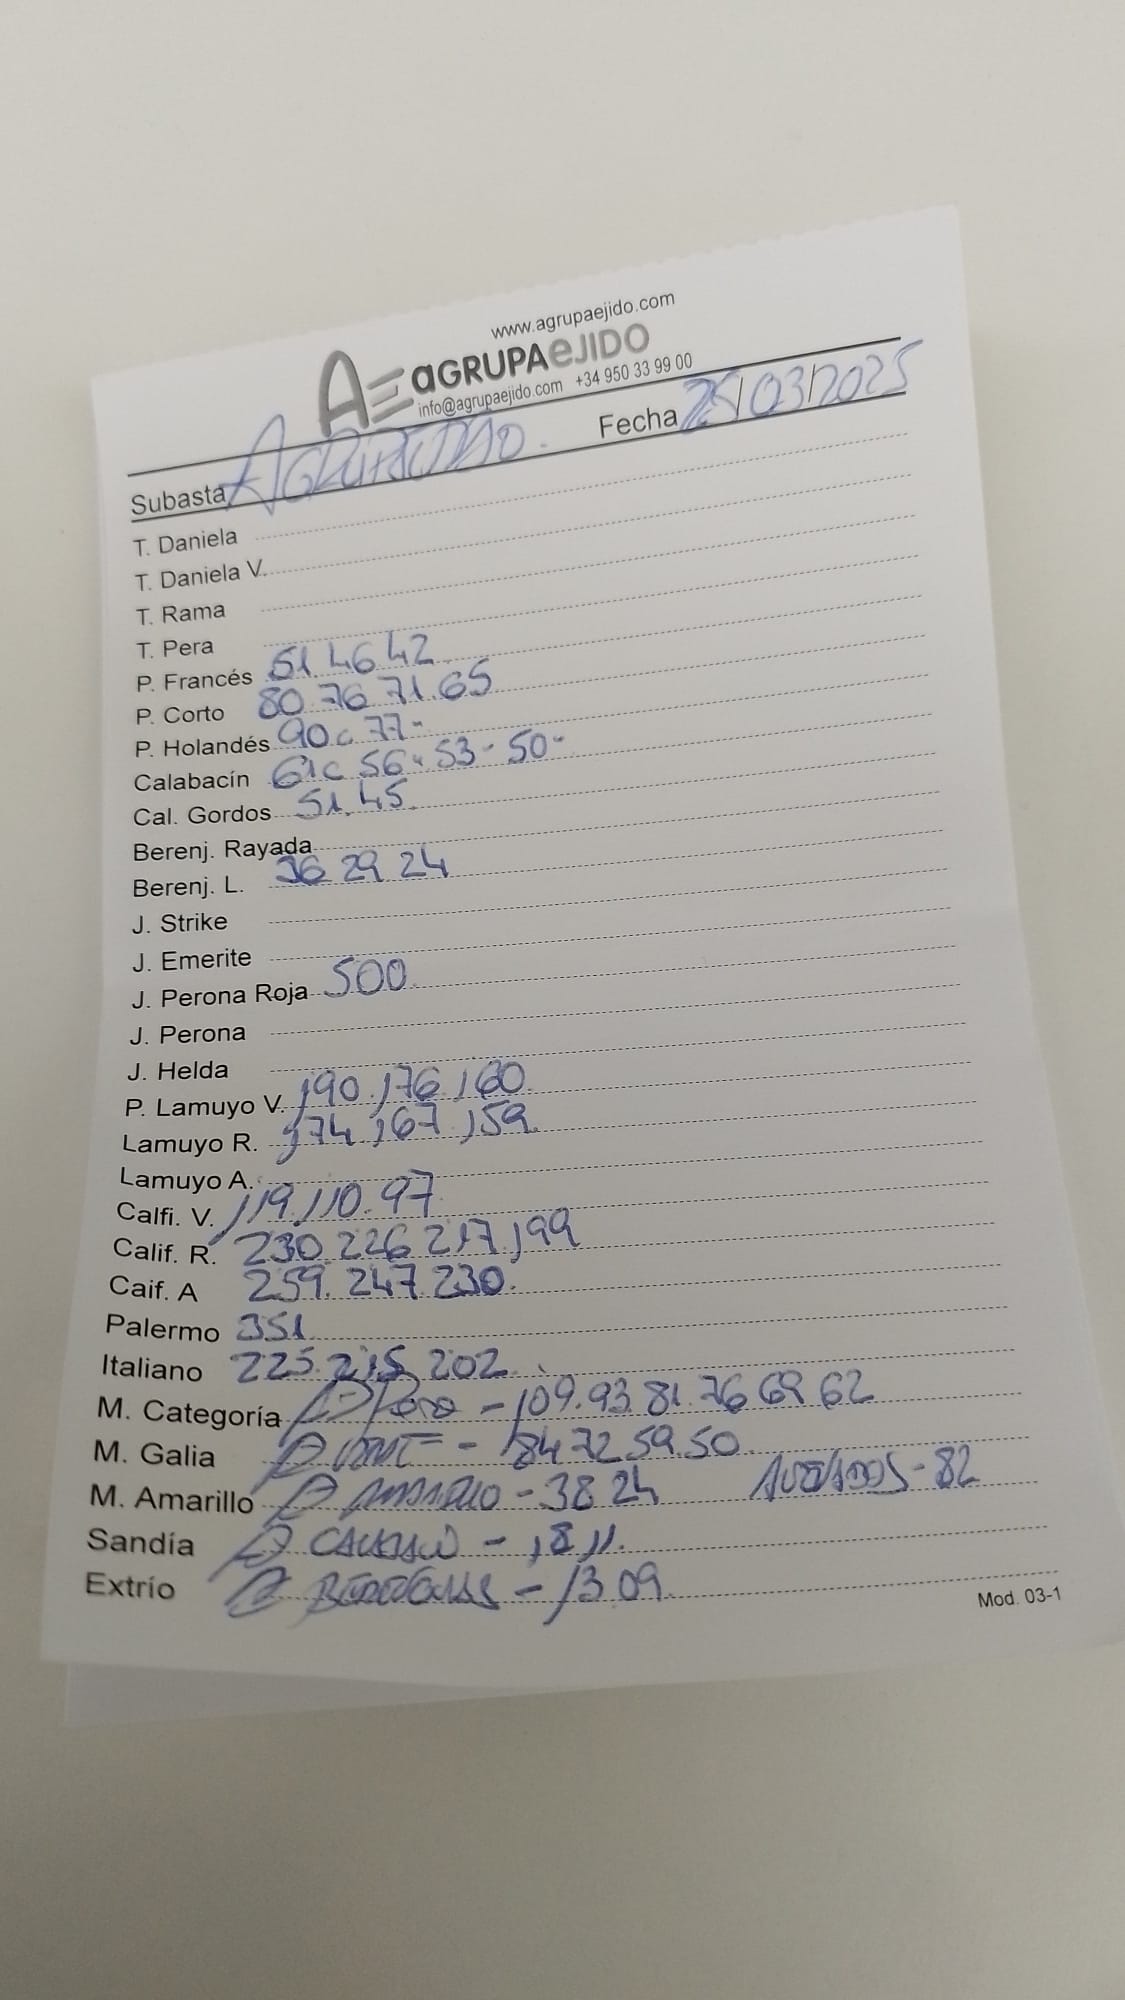 www.agrupaejido.com
AE aGRUPAeJIDO
info@agrupaejido.com +34 950 33 99 00
Subasta AGRUPAEJIDO. Fecha 25/03/2025
T. Daniela
T. Daniela V.
T. Rama
T. Pera
P. Francés 51 46 42
P. Corto 80 76 71.65
P. Holandés 90c 77-
Calabacín 61c 56-53-50-
Cal. Gordos 51.45
Berenj. Rayada
Berenj. L. 36 29 24
J. Strike
J. Emerite
J. Perona Roja 500
J. Perona
J. Helda
P. Lamuyo V. 190.176.160
Lamuyo R. 174.167.159
Lamuyo A.
Calfi. V. 119.110.97
Calif. R. 230 226 217.199
Caif. A 259.247.230.
Palermo 351
Italiano 225.215 202
M. Categoría - 109.93.81.76 69 62
M. Galia - 84 72 59.50
M. Amarillo AMARILLO - 38 24 - 82
Sandía - 18 11.
Extrío - 13 09
Mod. 03-1